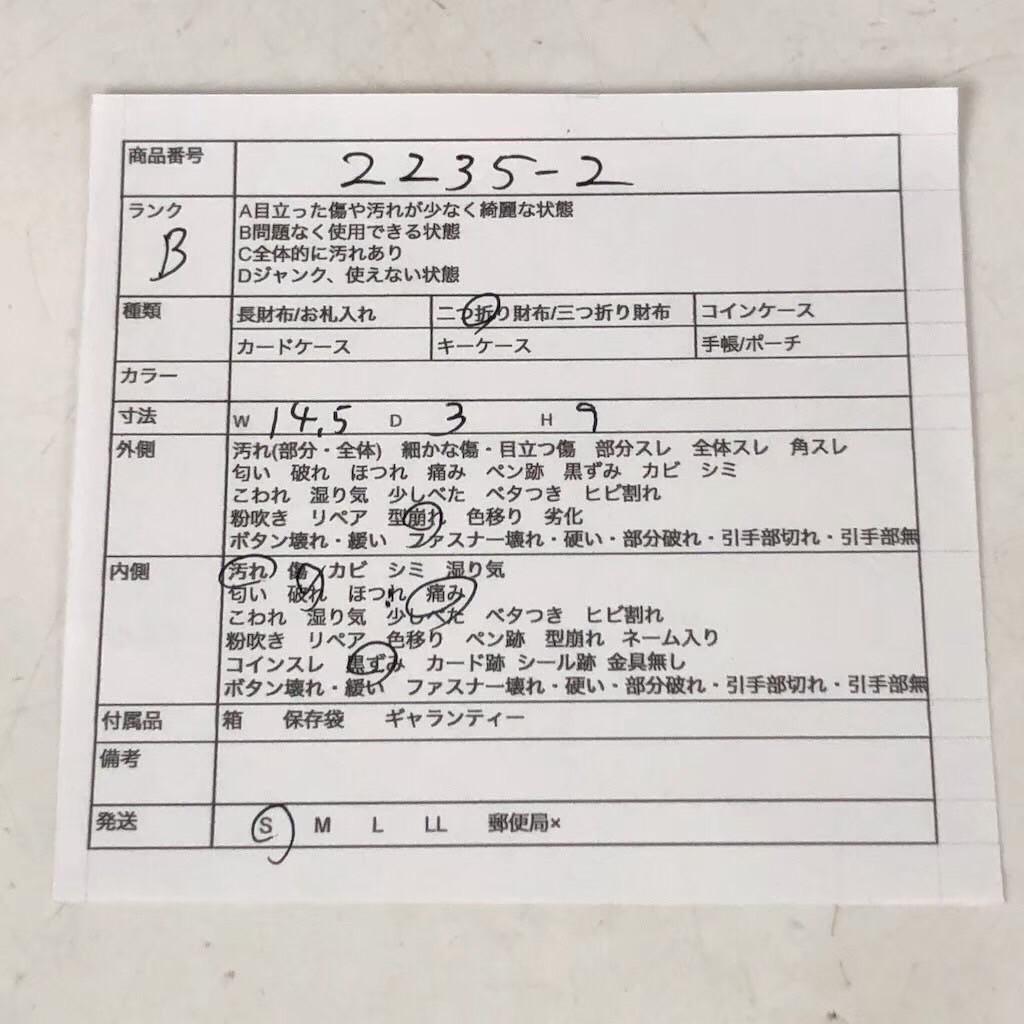 商品番号 2235-2
ランク B
A目立った傷や汚れが少なく綺麗な状態
B問題なく使用できる状態
C全体的に汚れあり
Dジャンク、使えない状態
種類 長財布/お札入れ 二つ折り財布/三つ折り財布 コインケース
カードケース キーケース 手帳/ポーチ
カラー
寸法 W 14.5 D 3 H 9
外側 汚れ(部分・全体) 細かな傷・目立つ傷 部分スレ 全体スレ 角スレ
匂い 破れ ほつれ 痛み ペン跡 黒ずみ カビ シミ
こわれ 湿り気 少しべた ベタつき ヒビ割れ
粉吹き リペア 型崩れ 色移り 劣化
ボタン壊れ・緩い ファスナー壊れ・硬い・部分破れ・引手部切れ・引手部無
内側 汚れ/傷/カビ シミ 湿り気
匂い 破れ ほつれ 痛み
こわれ 湿り気 少しべた ベタつき ヒビ割れ
粉吹き リペア 色移り ペン跡 型崩れ ネーム入り
コインスレ 黒ずみ カード跡 シール跡 金具無し
ボタン壊れ・緩い ファスナー壊れ・硬い・部分破れ・引手部切れ・引手部無
付属品 箱 保存袋 ギャランティー
備考
発送 S M L LL 郵便局×